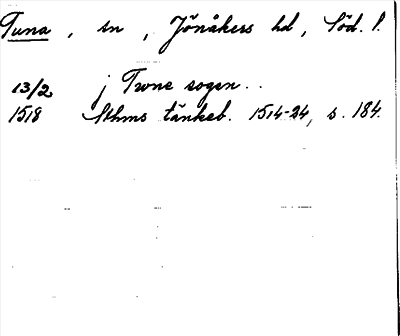 Tuna, sn, Jönåkers hd, Söd. l.
13/2 j Twne sogen..
1518 Sthms tänkeb. 1514-24, s. 184.